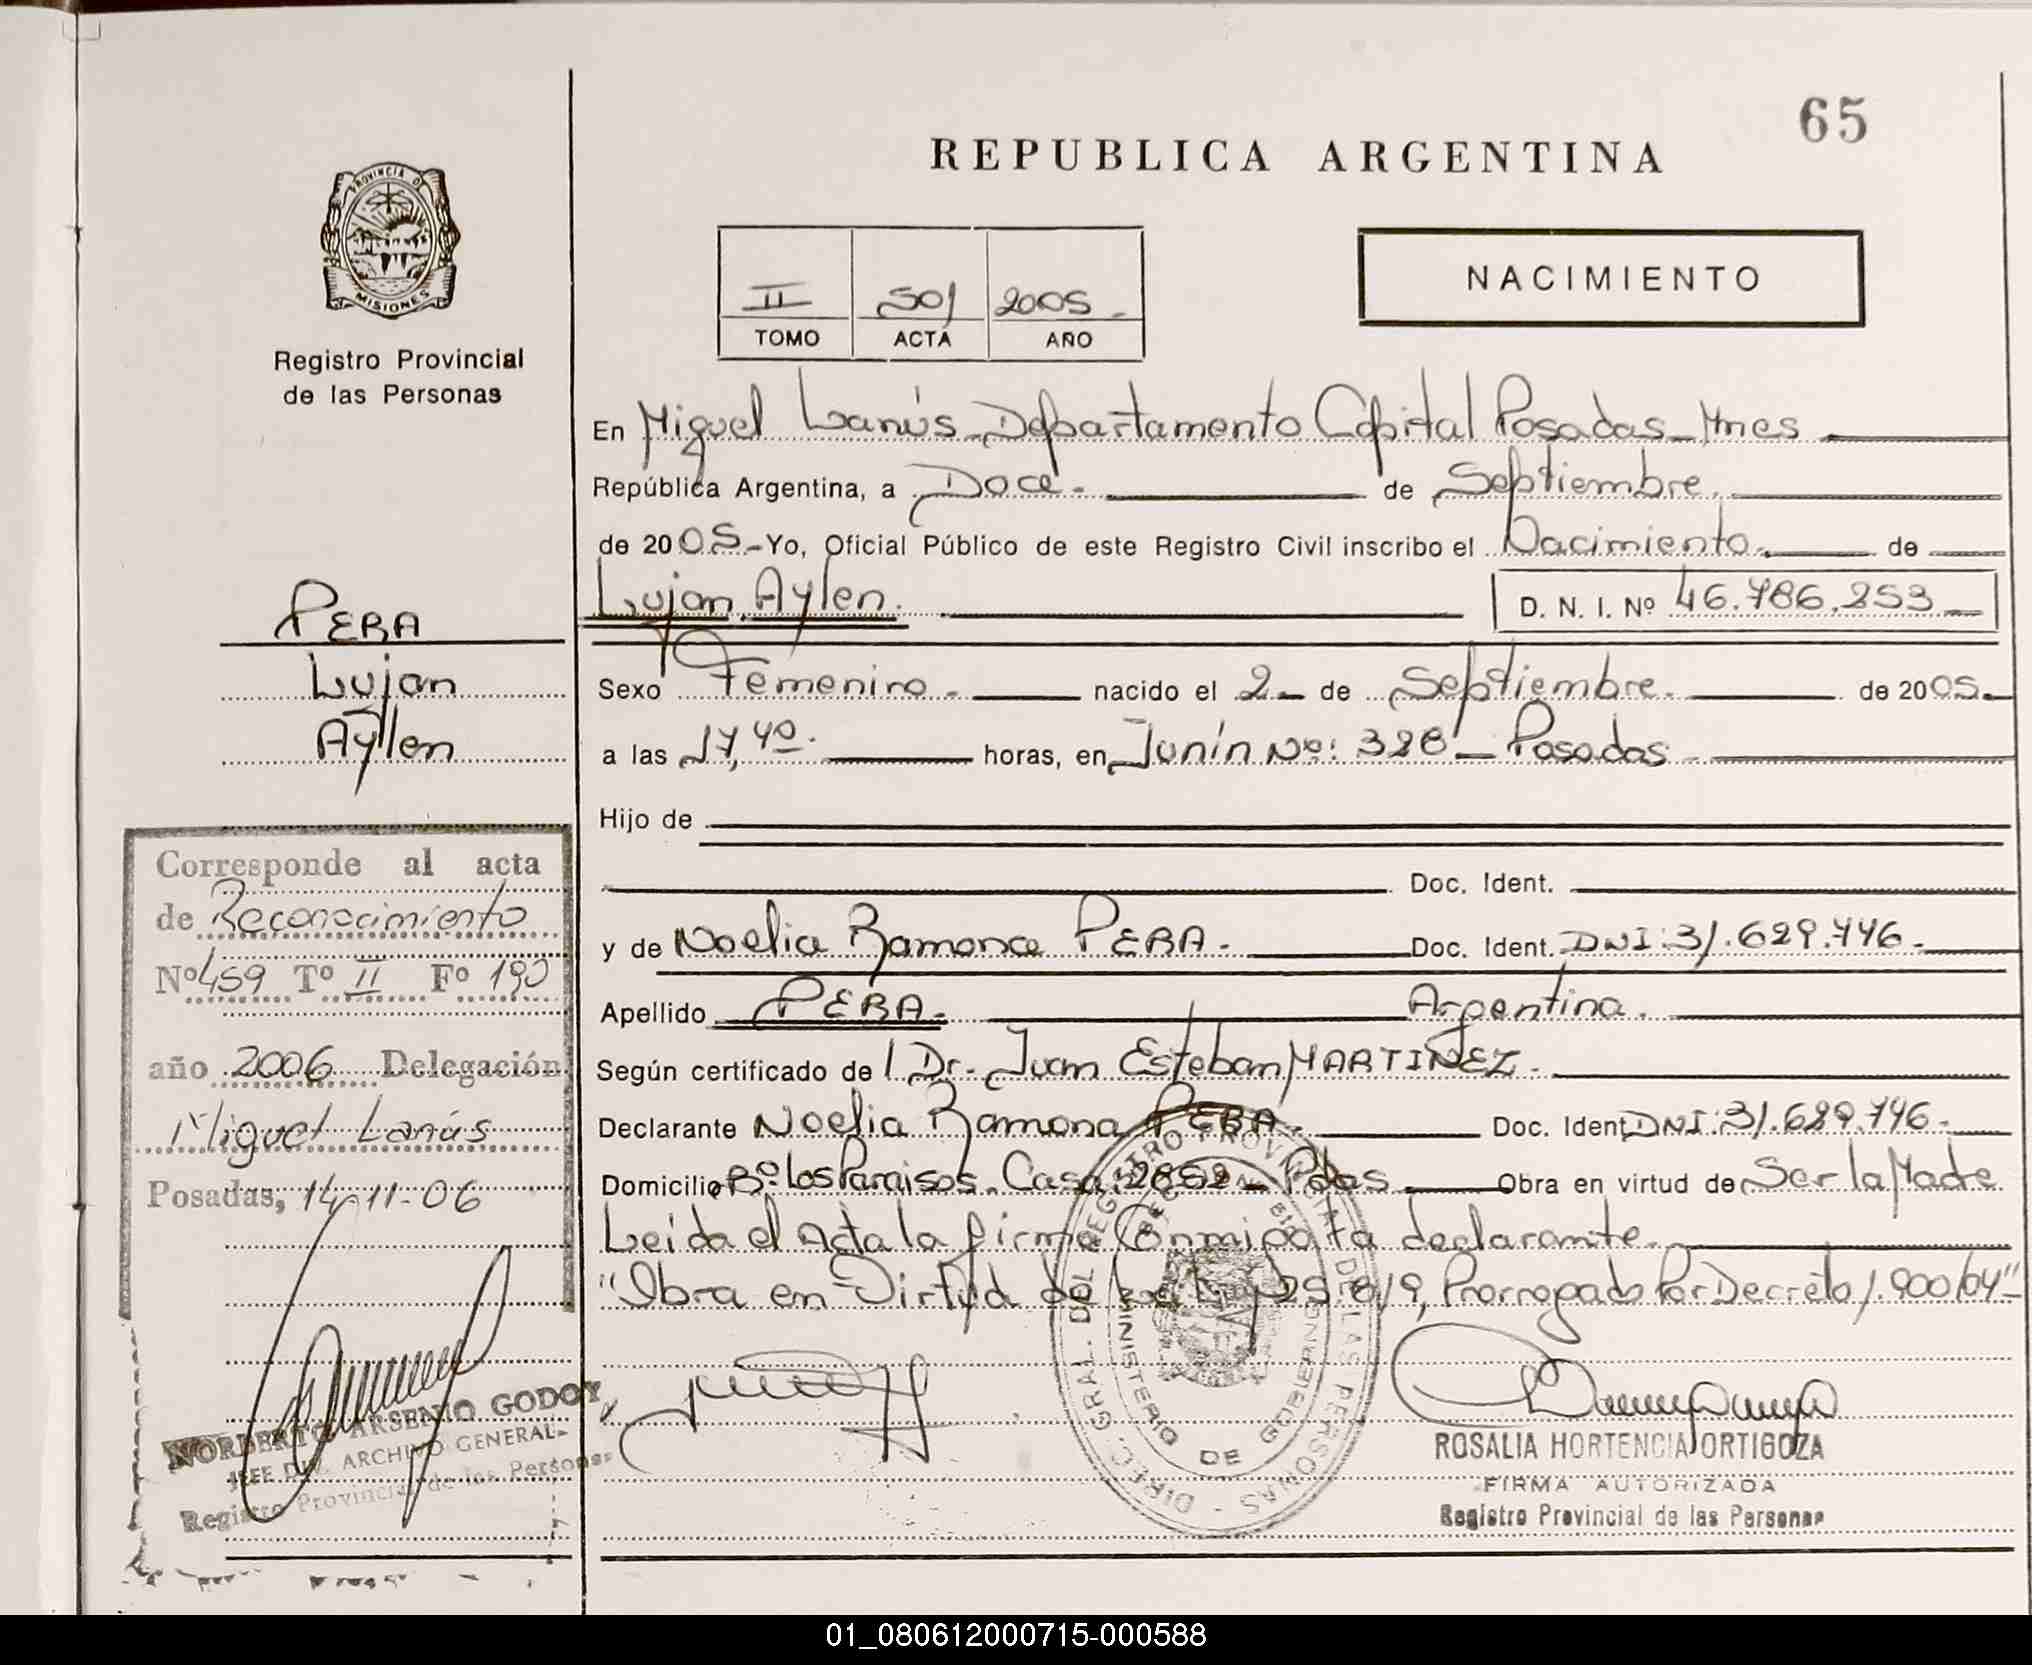 65
REPUBLICA ARGENTINA
PROVINCIA DE
MISIONES
Registro Provincial
de las Personas
II 501 2005
TOMO ACTA AÑO
NACIMIENTO
En Miguel Lanús Departamento Capital Posadas Mnes
República Argentina, a Doce. de Septiembre.
de 2005. Yo, Oficial Público de este Registro Civil inscribo el Nacimiento de
Lujan Aylen. D. N. I. Nº 46.786.253
Sexo Femenino. nacido el 2 de Septiembre. de 2005.
a las 17,40. horas, en Junín Nº: 328 - Posadas
Hijo de
Doc. Ident.
y de Noelia Ramona PERA. Doc. Ident. DNI: 31.629.746.
Apellido PERA. Argentina.
Según certificado de l Dr. Juan Esteban MARTINEZ.
Declarante Noelia Ramona PERA. Doc. Ident DNI: 31.629.746.
Domicilio Bº Los Paraisos. Casa: 2852 - Pdas Obra en virtud de Ser la Madre
Leida el Acta la firma Conmigo la declarante.
"Obra en Virtud de Ley 25.819, Prorrogado Por Decreto 1.900/04"
PERA
Lujan
Aylen
Corresponde al acta
de Reconocimiento
Nº 459 Tº II Fº 190
año 2006 Delegación
Miguel Lanús
Posadas, 14-11-06
NORBERTO ARSENIO GODOY
JEFE DIV. ARCHIVO GENERAL
Registro Provincial de las Personas
DIREC. GRAL. DEL REGISTRO PROVINCIAL DE LAS PERSONAS
MINISTERIO DE GOBIERNO
ROSALIA HORTENCIA ORTIGOZA
FIRMA AUTORIZADA
Registro Provincial de las Personas
01_080612000715-000588